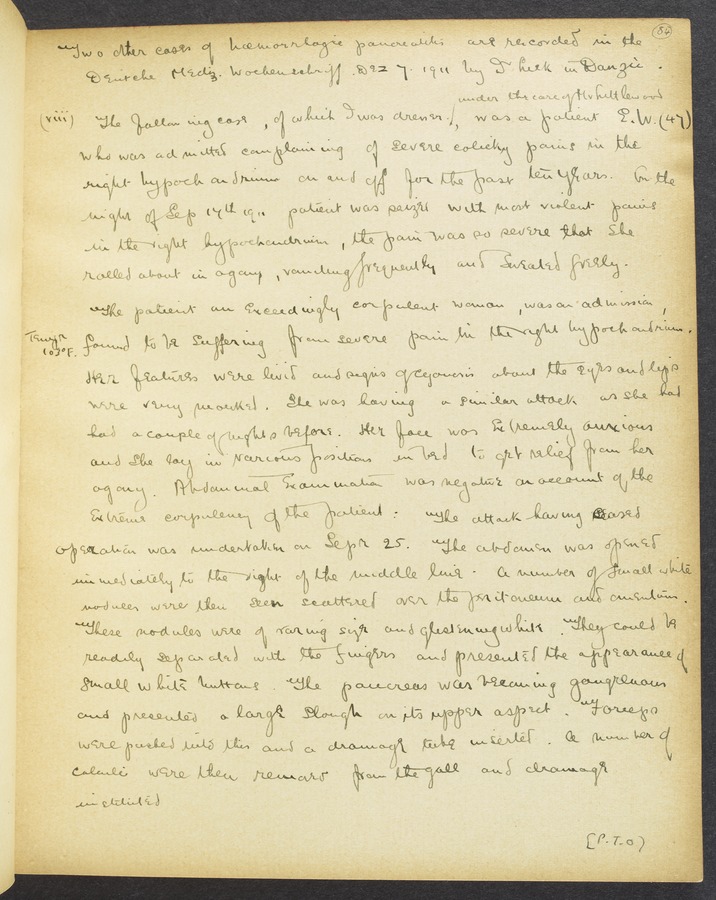 (86)
Two other cases of haemorrhagic pancreatitis are recorded in the
Deutche Mediz. Wochenschrift Dez 7. 1911 by in Danzic.
under the care of Mr Whittlewood
(viii) The following case, of which I was dresser /, was a patient E.W. (47)
who was admitted complaining of severe colicky pains in the
right hypochondrium on and off for the past ten years. On the
night of Sep 17th 1911 patient was seized with most violent pains
in the right hypochondrium, the pain was so severe that she
rolled about in agony, vomiting frequently and sweated freely.
The patient an exceedingly corpulent woman, was on admission,
Temp
103°F.
found to be suffering from severe pain in the right hypochondrium.
Her features were livid and signs of cyanosis about the eyes and lips
were very marked. She was having a similar attack as she had
had a couple of nights before. Her face was extremely anxious
and she lay in various positions in bed to get relief from her
agony. Abdominal Examination was negative on account of the
extreme corpulency of the patient: The attack having ceased
operation was undertaken on Sept 25. The abdomen was opened
immediately to the right of the middle line. A number of small white
nodules were then seen scattered over the peritoneum and omentum.
These nodules were of varing size and glistening white. They could be
readily separated with the fingers and presented the appearance of
small white buttons. The pancreas was becoming gangrenous
and presented a large slough on its upper aspect. Forceps
were pushed into this and a drainage tube inserted. A number of
calculi were then removed from the gall and drainage
instituted
[P.T.O)